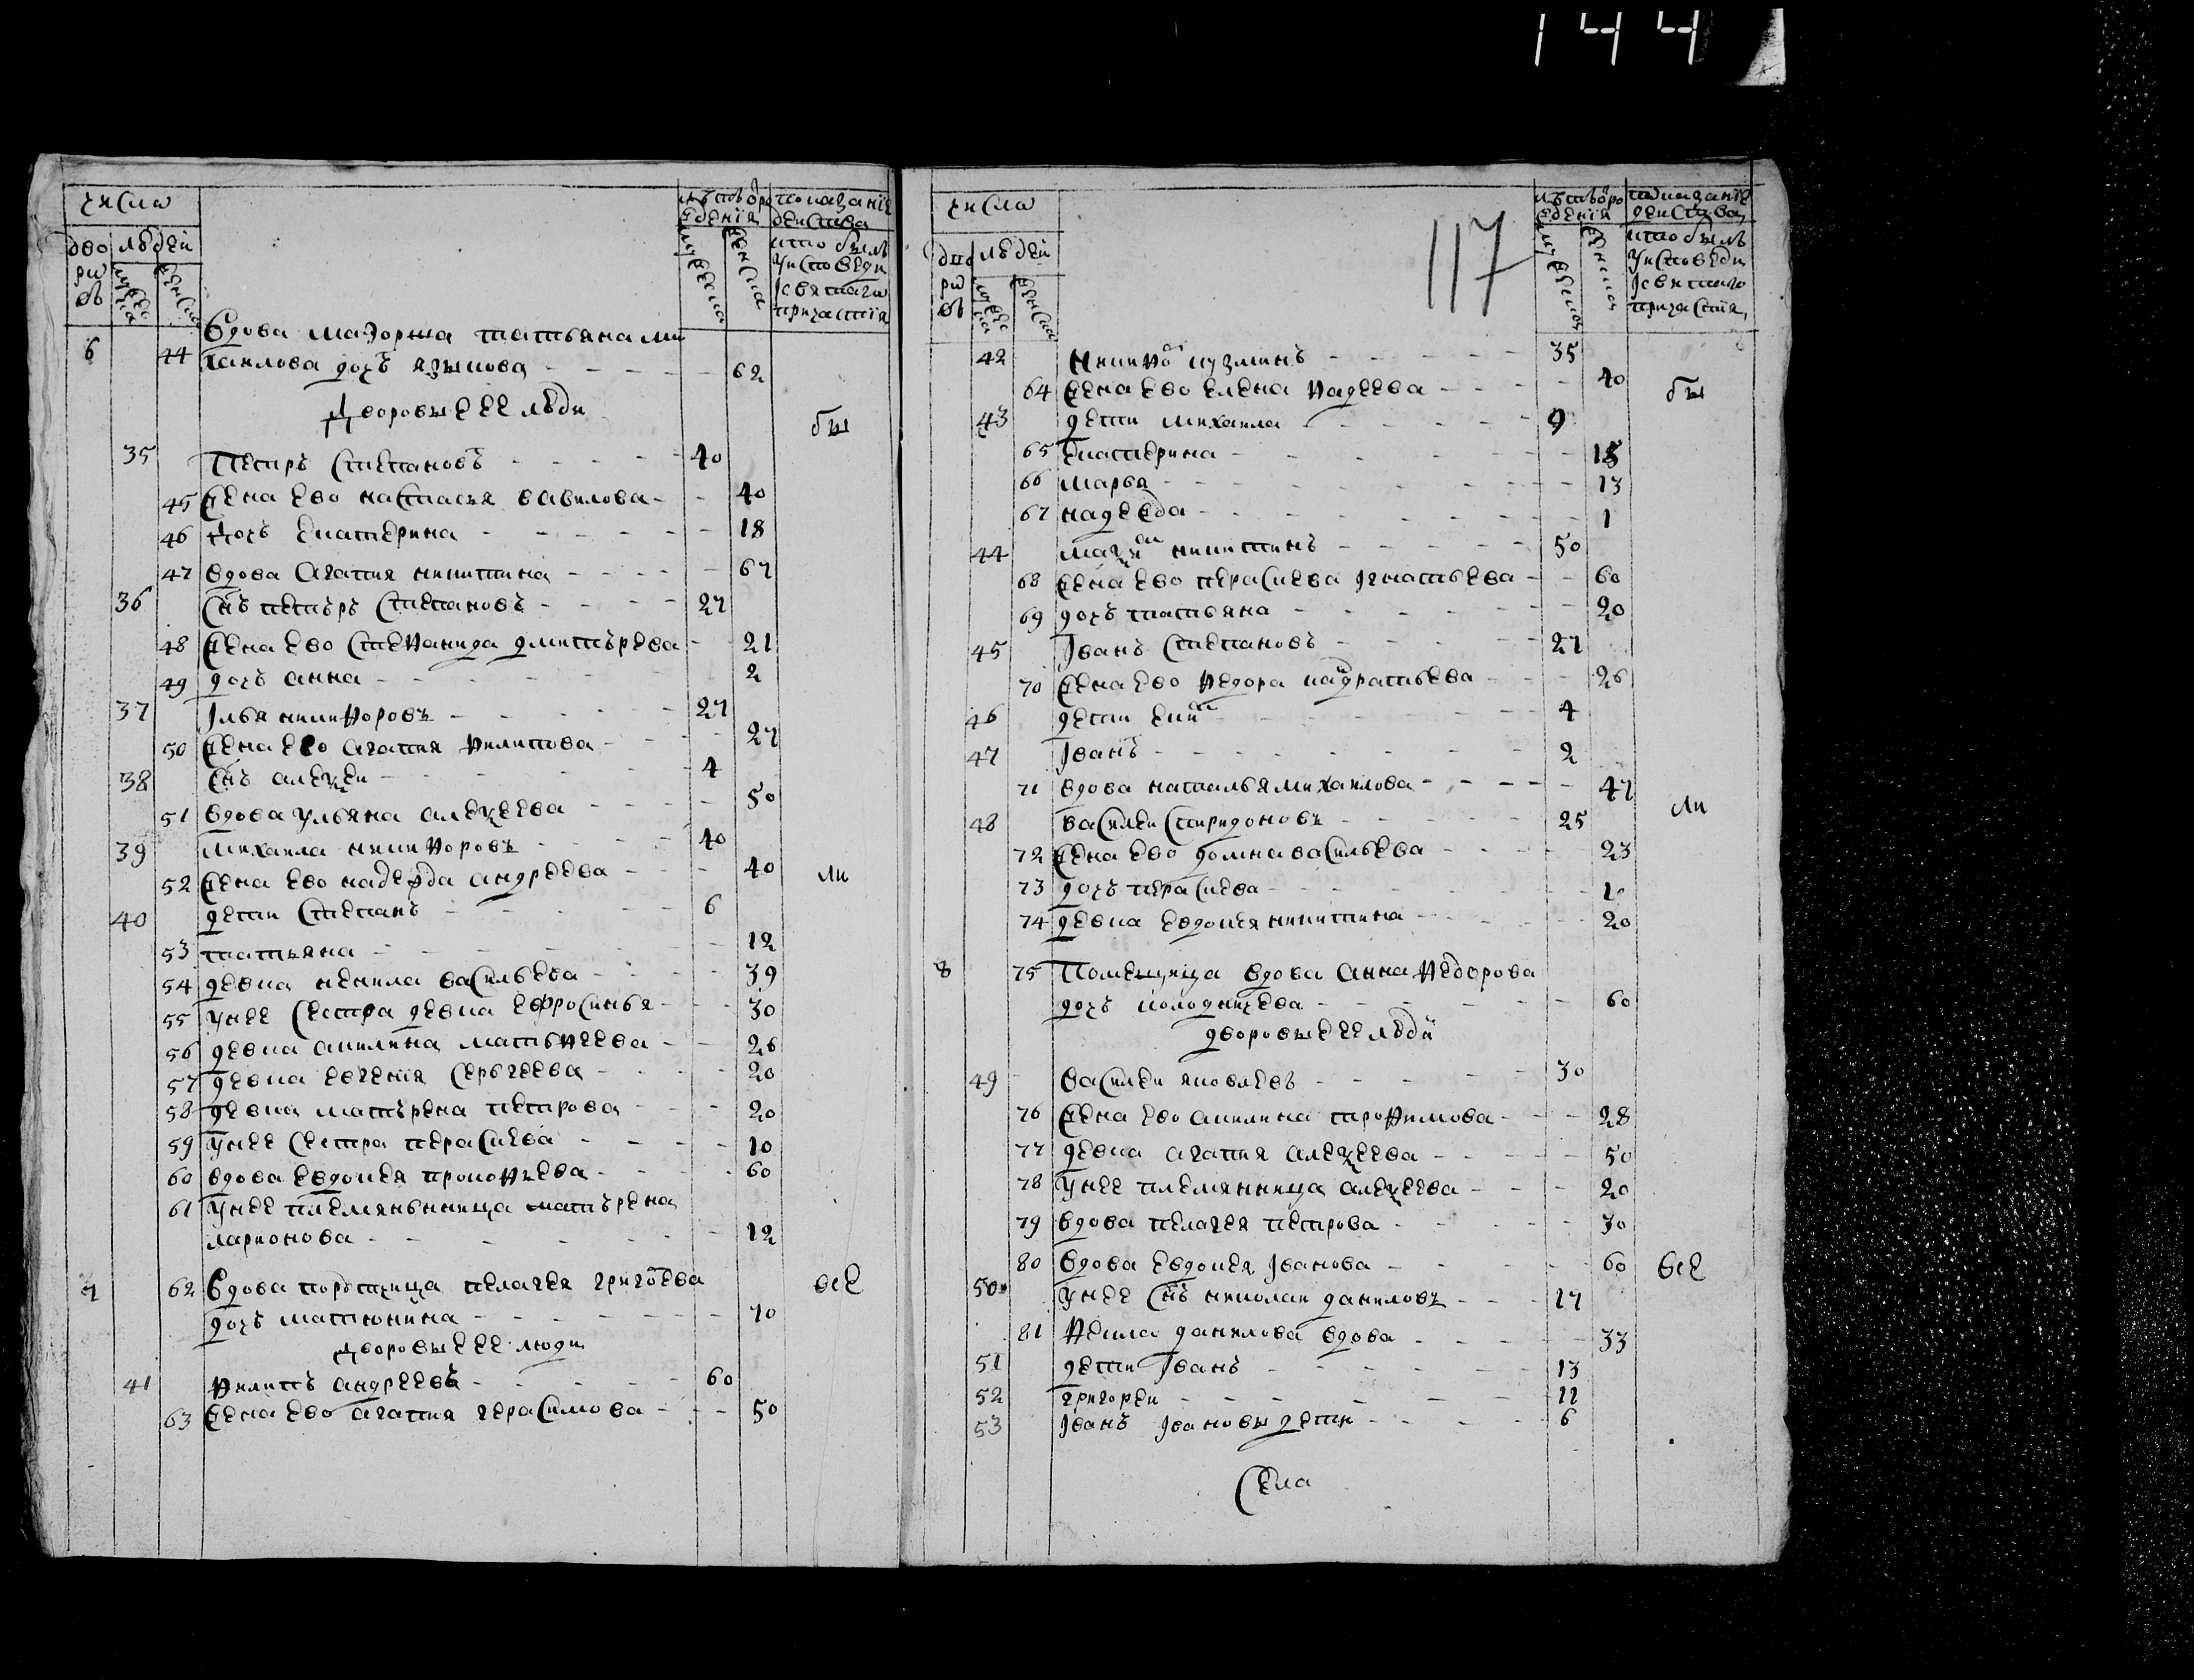 144
числа
лѣтъ ѿ ро
ждения
показание
действа
дво
ро
въ
людеи
мужеска
женска
мужеска
женска
кто былъ
уисповеди
ісвятаго
причастия
вдова маэорша татьяна ми
6 44 хаилова дочь языкова 62
Дворовые ее люди
бы
35 Петръ степановъ 40
45 жена ево настасья вавилова 40
46 Дочь екатерина 18
47 вдова агапия никитина 67
36 снъ петъръ степановъ 27
48 жена ево стефанида дмитърева 21
49 дочь анна 2
37 Iлья никифоровъ 27
50 жена ево агапия филипова 27
38 снъ алеѯеи 4
51 вдова ульяна алеѯеева 50
39 михаила никифоровъ 40
52 жена ево надежда андреева 40
ли
40 дети степанъ 6
53 татьяна 12
54 девка ненила васильева 39
55 унее сестра девка ефросинья 30
56 девка акилина матьфеева 26
57 девка евгения сергеева 20
58 девка матърена петрова 20
59 унее сестра парасиева 10
60 вдова евдокея прокофьева 60
61 унее племяньница матърена
ларионова 12
7 62 Вдова порутчица пелагея григоева
дочь матюнина 70
все
Дворовые ее люди
41 филипъ андреевъ 60
63 жена ево агапия герасимова 50
117
числа
лѣтъ ѿ ро
ждения
показание
действа
дво
ро
въ
людеи
мужеска
женска
мужеска
женска
кто былъ
уисповеди
ісвятаго
причастия
42 никифо кузминъ 35
64 жена ево елена фадеева 40
бы
43 дети михаила 9
65 екатерина 15
66 марья 13
67 надежда 1
44 никитинъ 50
68 жена ево парасиева игнатьева 60
69 дочь татьяна 20
45 Iванъ степановъ 27
70 жена ево федора кадратьева 26
46 дети 4
47 Iванъ 2
71 вдова наталья михаилова 47
ли
48 василеи спиридоновъ 25
72 жена ево домна васильева 23
73 дочь парасиева 1
74 девка евдокея никитина 20
8 75 Помещица вдова анна федорова
дочь колодничева 60
дворовые ее люди
49 василеи яковлевъ 30
76 жена ево акилина трофимова 28
77 девка агапия алеѯеева 50
78 унее племянница алеѯеева 20
79 вдова пелагея петрова 30
80 вдова евдокея Iванова 60
все
50 унее снъ николаи даниловъ 17
81 фекла данилова вдова 33
51 дети Iванъ 13
52 григореи 11
53 Iванъ Iвановы дети 6
села